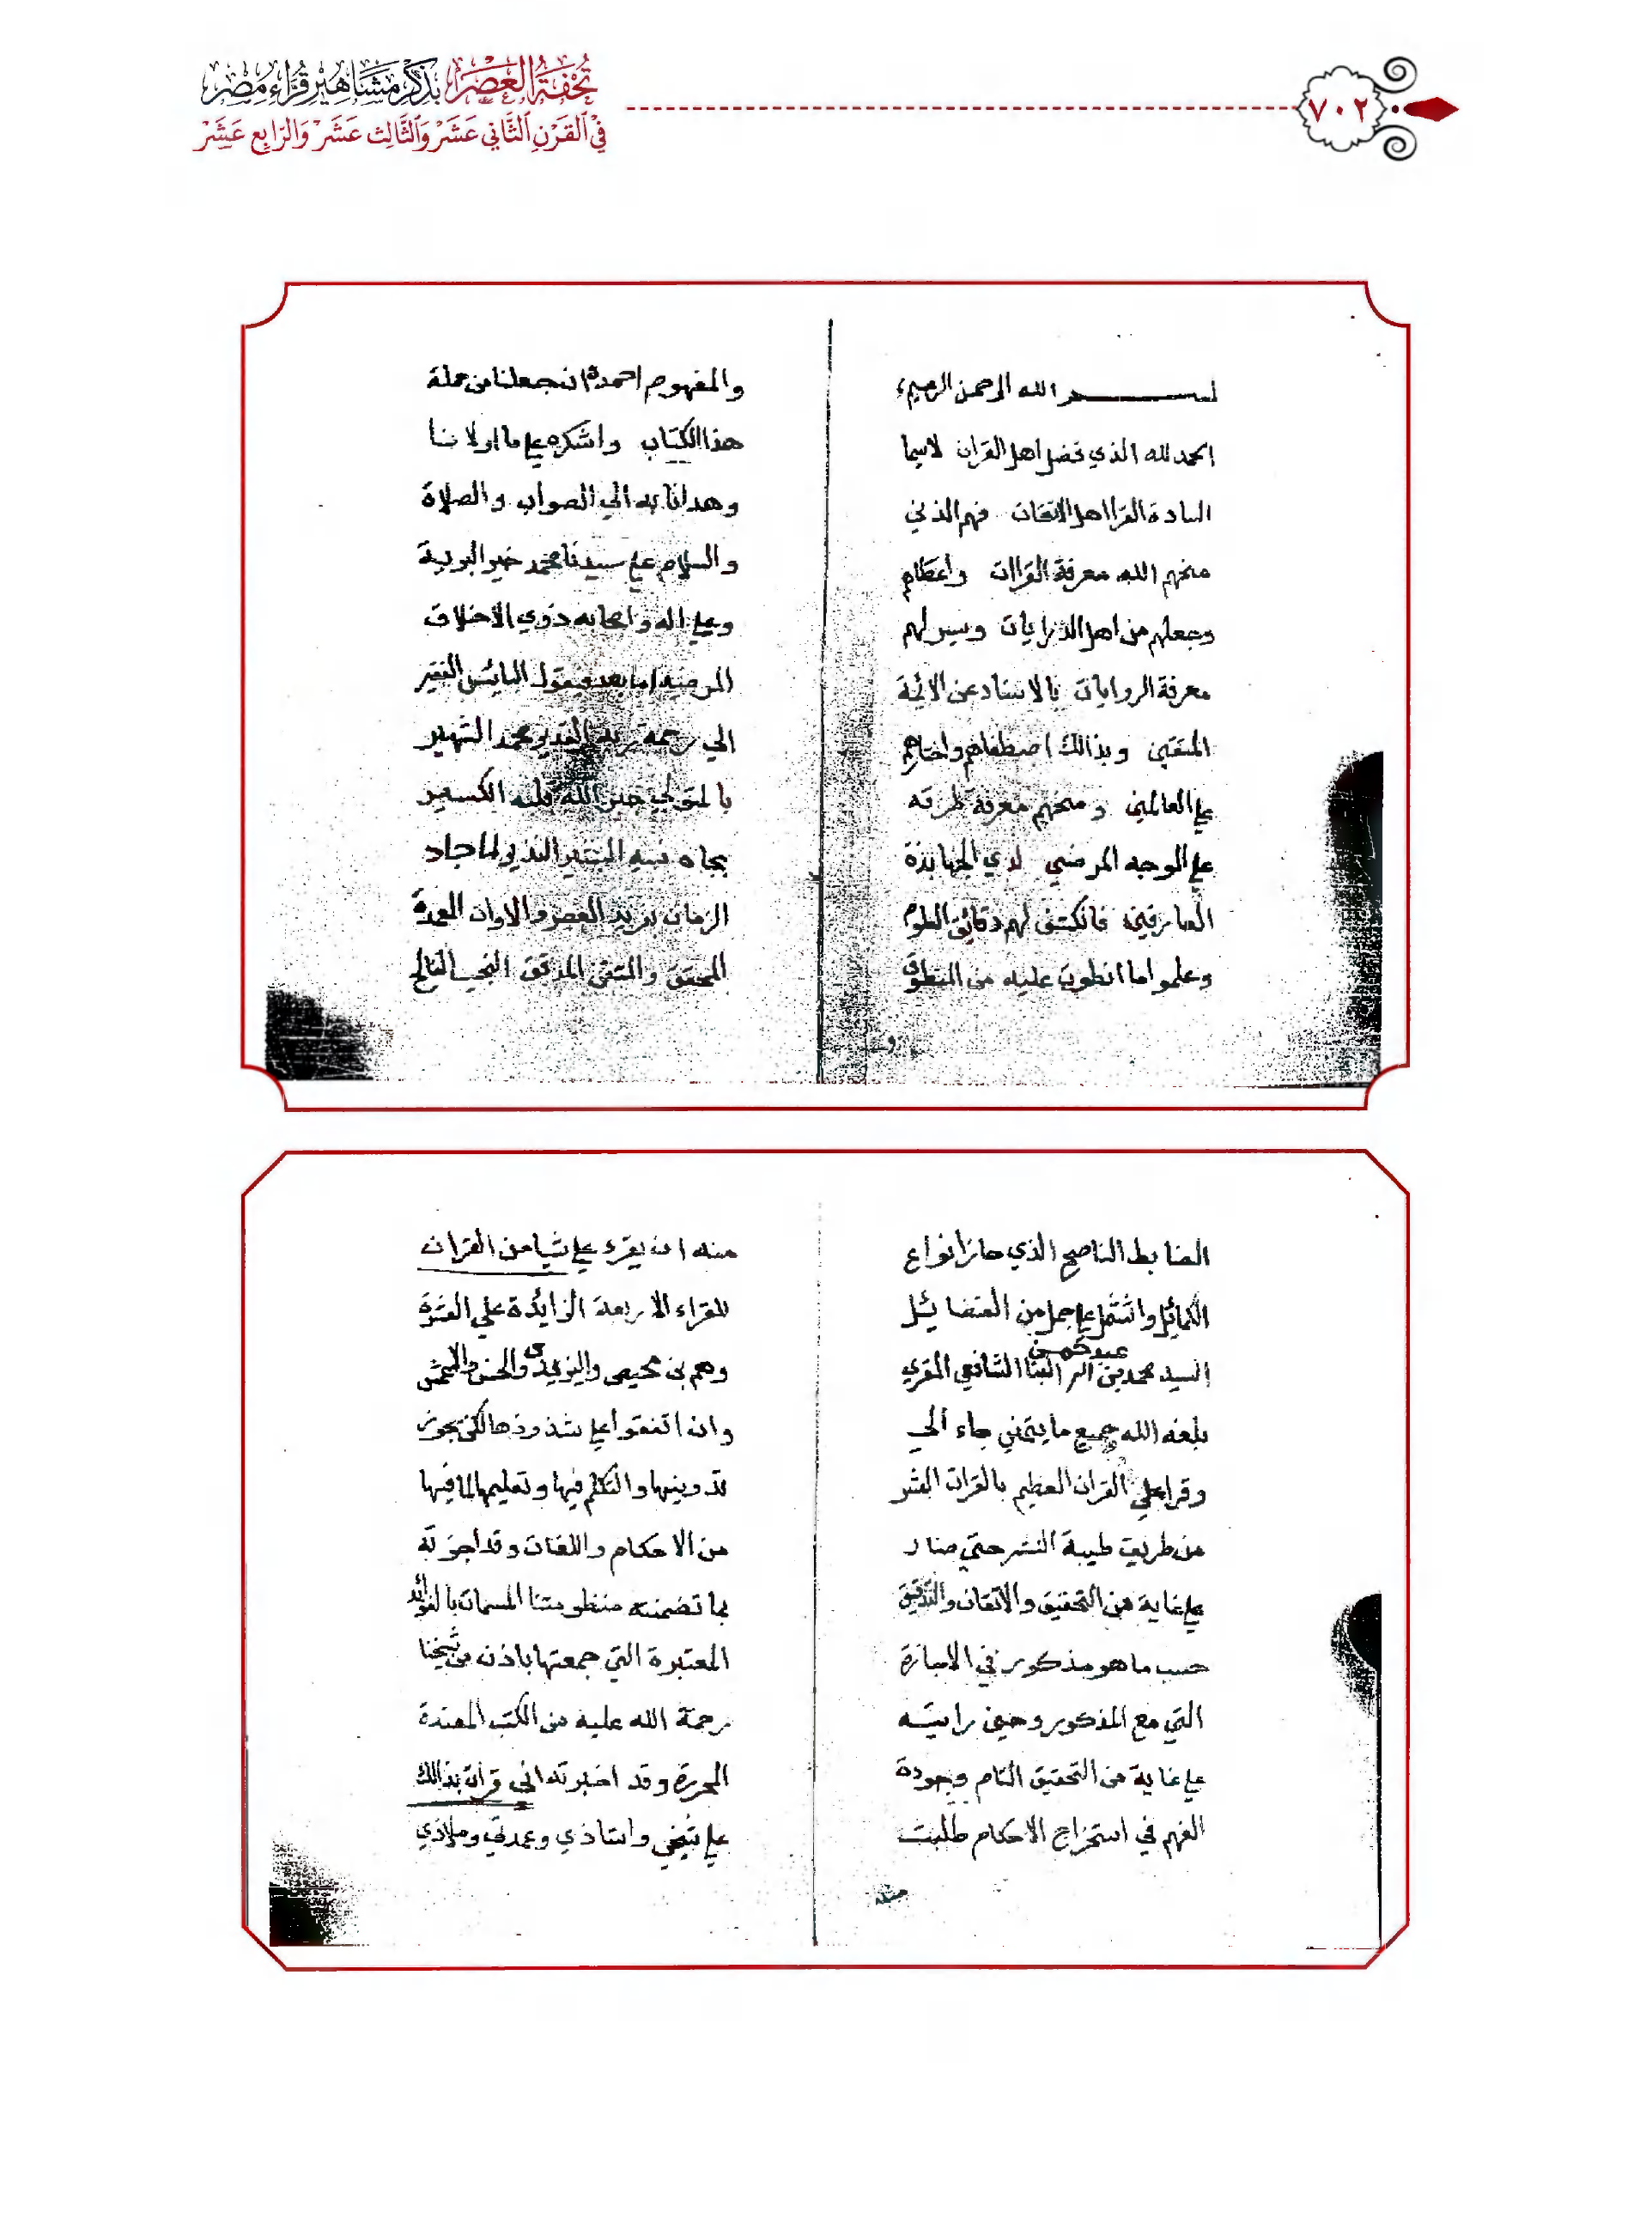 تُحْفَةُ العَصْرِ بِذِكْرِ مَشَاهِيرِ قُرَّاءِ مِصْرَ
فِي القَرْنِ الثَّانِي عَشَرَ وَالثَّالِث عَشَرَ وَالرَّابِع عَشَرَ
٧٠٢
بسم الله الرحمن الرحيم
الحمد لله الذي فضل اهل القران لاسيما
السادة القرا اهل الاتقان فهم الذين
منحهم الله معرفة القراات واعطاهم
وجعلهم من اهل الدرايات ويسر لهم
معرفة الروايات بالاسناد عن الائمة
المتقين وبذالك اصطفاهم واختارهم
علي العالمين ومنحهم معرفة طرقه
علي الوجه المرضي لدي الجهابذة
العارفين فانكشف لهم دقائق العلوم
وعلموا ما انطوت عليه من المنطوق
و
والمفهوم احمده ان جعلنا من حملة
هذا الكتاب واشكره علي ما اولانا
وهدانا به الي الصواب والصلاة
والسلام علي سيدنا محمد خير البرية
وعلي اله واصحابه ذوي الاخلاق
المرضية اما بعد فيقول البائس الفقير
الي رحمة ربه القدير محمد الشهير
بالمتولي جبر الله قلبه الكسير
بجاه نبيه البشير النذير لما جاد
الزمان بفريد العصر والاوان العمدة
المحقق والمتقن المدقق النجيب الفالح
الضابط الناصح الذي حاز انواع
الكمائل واشتمل علي جمل من الفضائيل
السيد محمد بن البنا الشافعي المقري
بلغه الله جميع ما يتمني جاء الي
وقرا علي القران العظيم بالقرات العشر
من طريق طيبة النشر حتي صار
علي غاية من التحقيق والاتقان والتدقيق
حسب ما هو مذكور في الاجازة
التي مع المذكور وحين رايته
علي غاية من التحقيق التام وجودة
الفهم في استخراج الاحكام طلبت
منه
منه ان يقرء علي شيا من القران
للقراء الاربعة الزايدة علي العشرة
وهم بن محيصن واليزيدي والحسن والاعمش
وان اتفقوا علي شذوذها لكن يجوز
تدوينها والتكلم فيها وتعليمها لما فيها
من الاحكام واللغات وقد اجزته
بما تضمنته منظومتنا المسمات بالفوائد
المعتبرة التي جمعتها باذن من شيخنا
رحمة الله عليه من الكتب المعتمدة
المحررة وقد اخبرته اني قرات بذالك
علي شيخي واستاذي وعمدتي وملاذي